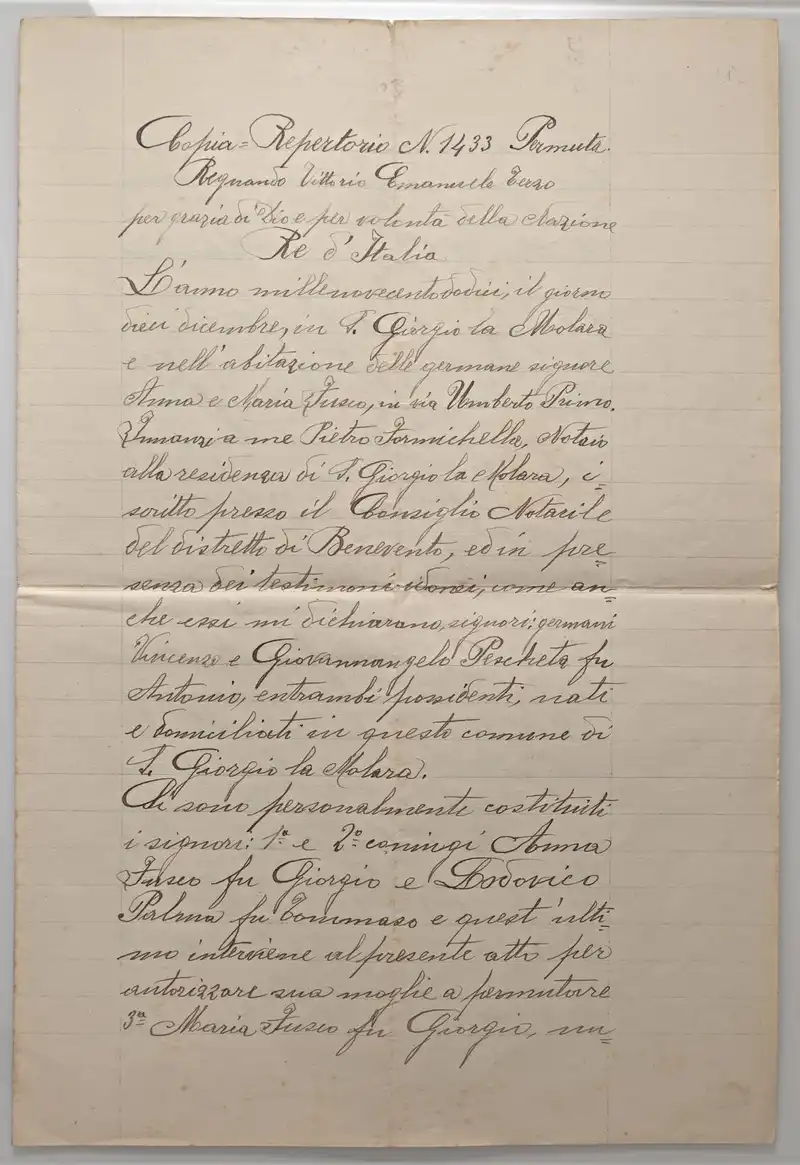 Copia= Repertorio N. 1433 Permuta.
Regnando Vittorio Emanuele Terzo
per grazia di Dio e per volontà della Nazione
Re d'Italia
L'anno millenovecentododici, il giorno
dieci dicembre, in S. Giorgio la Molara
e nell'abitazione delle germane signore
Anna e Maria Fusco, in via Umberto Primo.
Innanzi a me Pietro Formichella, Notaio
alla residenza di S. Giorgio la Molara, i=
scritto presso il Consiglio Notarile
del distretto di Benevento, ed in pre=
senza dei testimoni idonei, come an=
che essi mi dichiarano, signori: germani
Vincenzo e Giovannangelo Pescheta fu
Antonio, entrambi possidenti, nati
e domiciliati in questo comune di
S. Giorgio la Molara.
Si sono personalmente costituiti
i signori: 1ª e 2º coniugi Anna
Fusco fu Giorgio e Lodovico
Palma fu Tommaso e quest'ulti=
mo interviene al presente atto per
autorizzare sua moglie a permutare
3ª Maria Fusco fu Giorgio, nu=